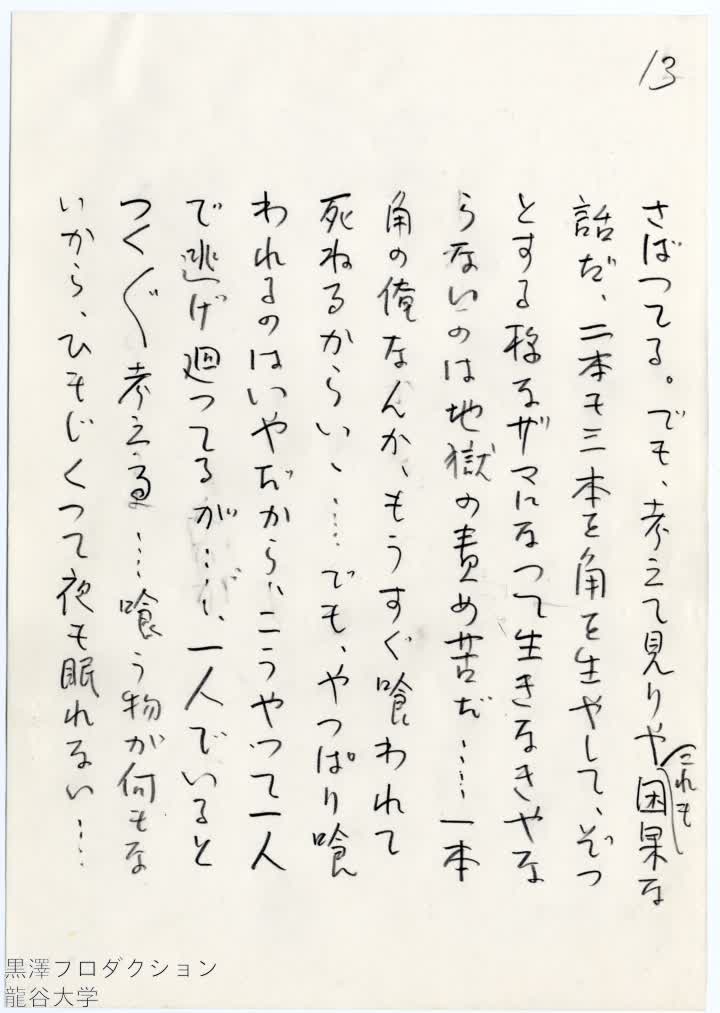 13
さばつてる。でも、考えて見りや因果な
これも
話だ、二本も三本を角を生やして、ぞつ
とする様なザマになつて生きなきやな
らないのは地獄の責め苦だ……一本
角の俺なんか、もうすぐ喰われて
死ねるからいゝ……でも、やつぱり喰
われるのはいやだから、こうやつて一人
で逃げ廻つてるが……、一人でいると
つくぐ考える……喰う物が何もな
いから、ひもじくつて夜も眠れない……
黒澤プロダクション
龍谷大学